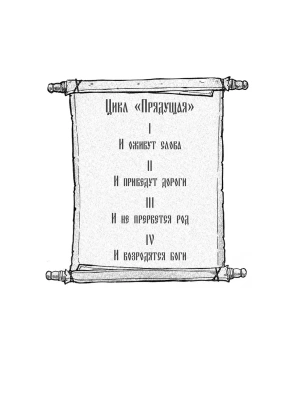 Цикл «Прядущая»
I
И оживут слова
II
И приведут дороги
III
И не прервется род
IV
И возродятся боги